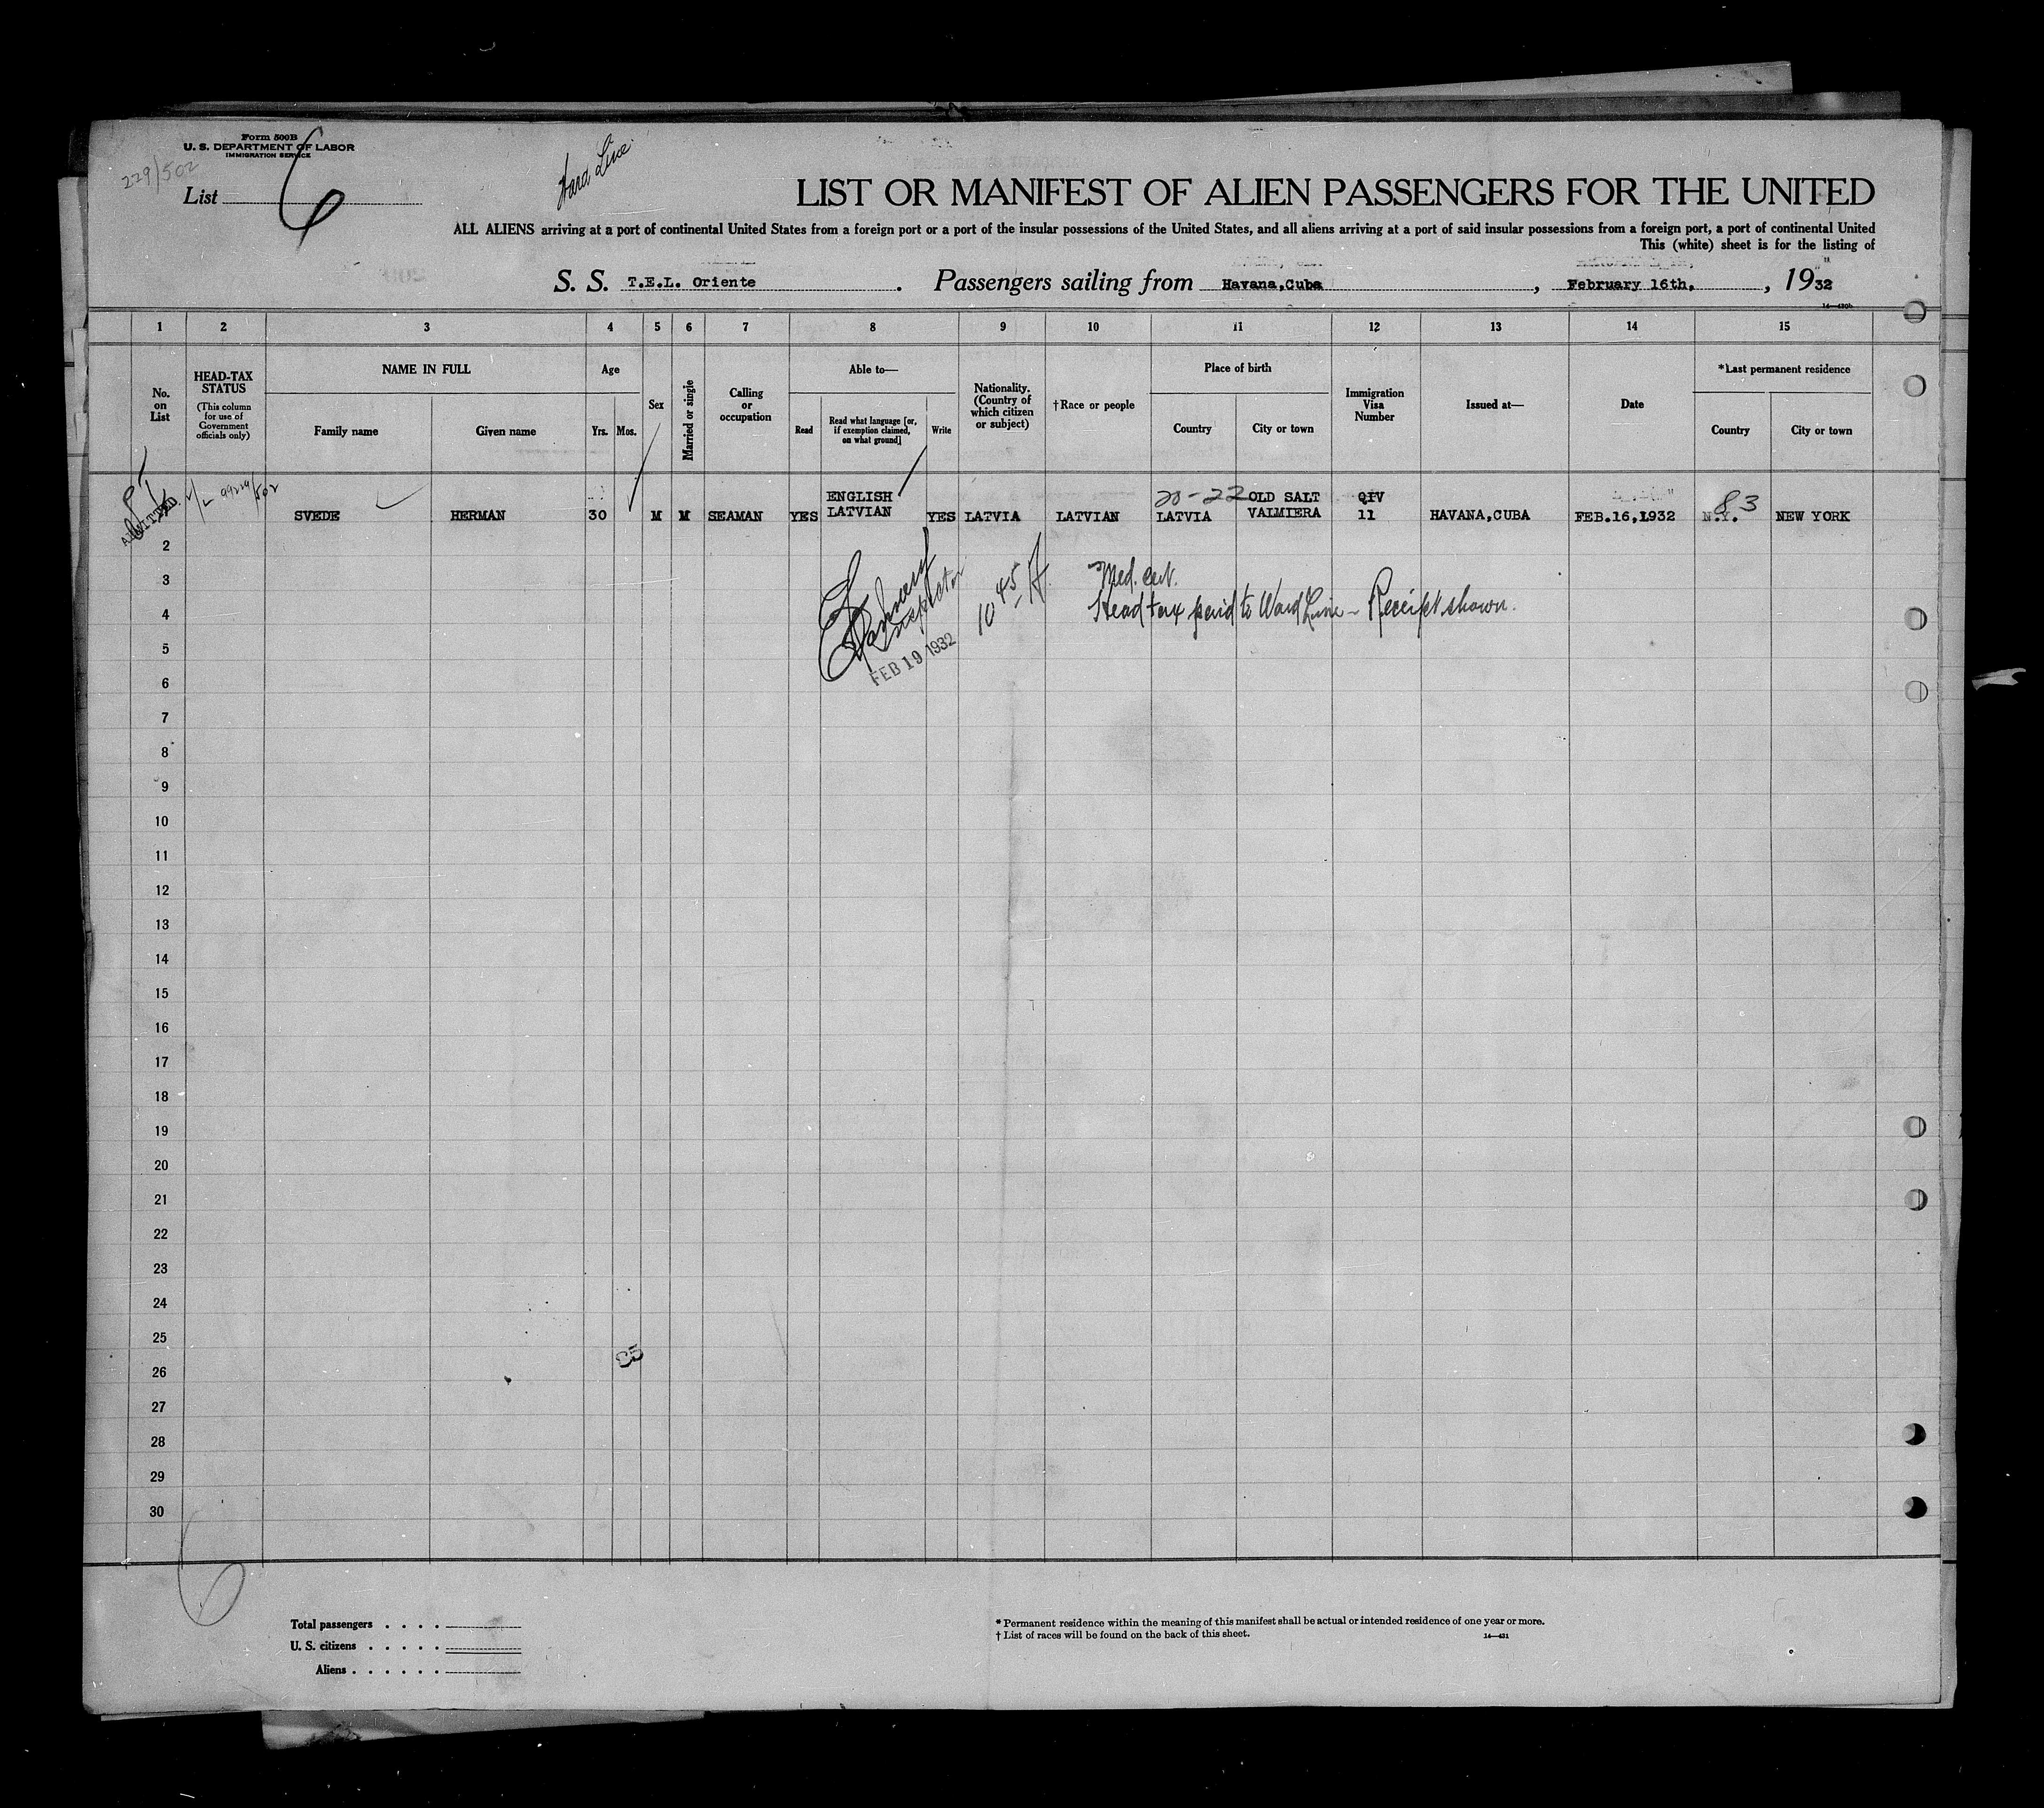 Form 500B
U. S. DEPARTMENT OF LABOR
IMMIGRATION SERVICE
229/502
List 6
Ward Line
LIST OR MANIFEST OF ALIEN PASSENGERS FOR THE UNITED
ALL ALIENS arriving at a port of continental United States from a foreign port or a port of the insular possessions of the United States, and all aliens arriving at a port of said insular possessions from a foreign port, a port of continental United
This (white) sheet is for the listing of
S. S. T.E.L. Oriente. Passengers sailing from Havana,Cuba, February 16th, , 1932
14—430b
1 2 3 4 5 6 7 8 9 10 11 12 13 14 15
No. on List
HEAD-TAX STATUS
(This column for use of Government officials only)
NAME IN FULL
Family name
Given name
Age
Yrs.
Mos.
Sex
Married or single
Calling or occupation
Able to—
Read
Read what language [or, if exemption claimed, on what ground]
Write
Nationality. (Country of which citizen or subject)
†Race or people
Place of birth
Country
City or town
Immigration Visa Number
Issued at—
Date
*Last permanent residence
Country
City or town
ADMITTED
1
99229/502
SVEDE HERMAN 30 M M SEAMAN YES ENGLISH LATVIAN YES LATVIA LATVIAN 20-22 LATVIA OLD SALT VALMIERA QIV 11 HAVANA,CUBA FEB.16,1932 N.Y. 83 NEW YORK
2
3
4
5
6
7
8
9
10
11
12
13
14
15
16
17
18
19
20
21
22
23
24
25
26
27
28
29
30
Inspector
FEB 19 1932
10 45 A
Med. cert.
Head tax paid to Ward Line - Receipt shown.
6
Total passengers . . . .
U. S. citizens . . . . .
Aliens . . . . . .
* Permanent residence within the meaning of this manifest shall be actual or intended residence of one year or more.
† List of races will be found on the back of this sheet.
14—431